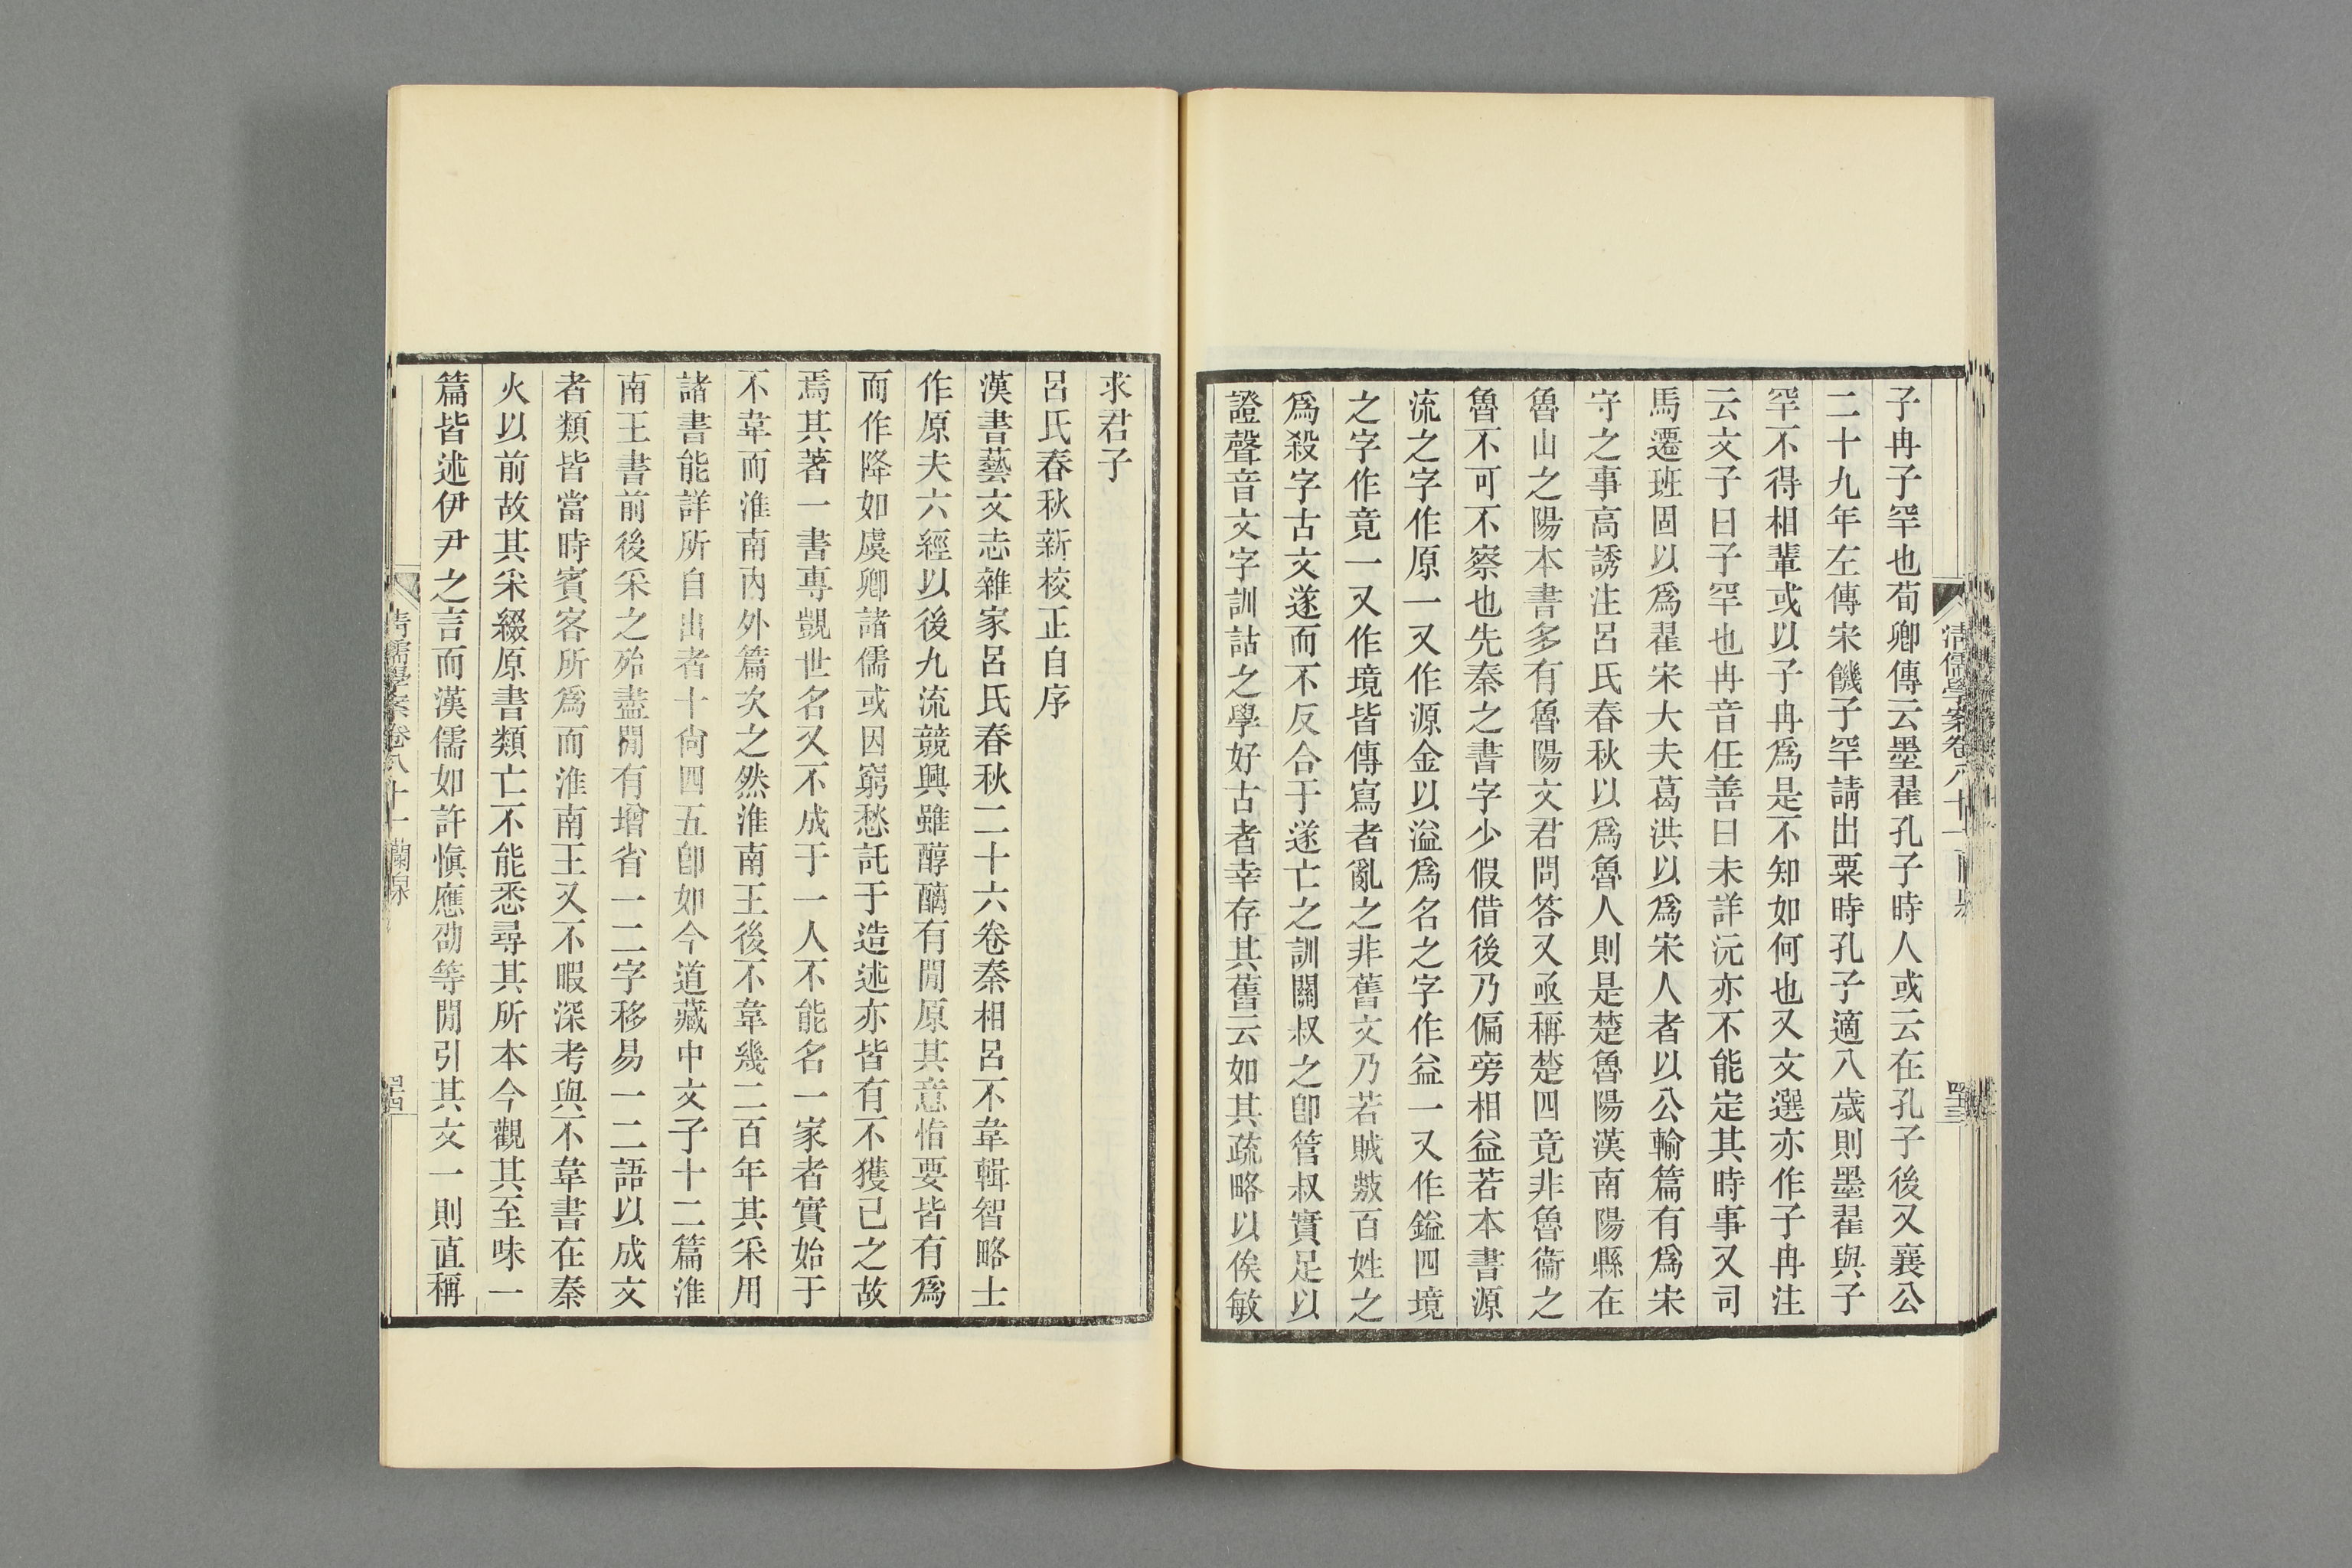 子冉子罕也荀卿傳云墨翟孔子時人或云在孔子後又襄公
二十九年左傳宋饑子罕請出粟時孔子適八歲則墨翟與子
罕不得相輩或以子冉爲是不知如何也又文選亦作子冉注
云文子曰子罕也冉音任善曰未詳沅亦不能定其時事又司
馬遷班固以爲翟宋大夫葛洪以爲宋人者以公輸篇有爲宋
守之事高誘注呂氏春秋以爲魯人則是楚魯陽漢南陽縣在
魯山之陽本書多有魯陽文君問答又亟稱楚四竟非魯衞之
魯不可不察也先秦之書字少假借後乃偏旁相益若本書源
流之字作原一又作源金以溢爲名之字作益一又作鎰四境
之字作竟一又作境皆傳寫者亂之非舊文乃若賊𢿱百姓之
爲殺字古文遂而不反合于遂亡之訓關叔之卽管叔實足以
證聲音文字訓詁之學好古者幸存其舊云如其疏略以俟敏
清儒學案卷八十一
求君子
呂氏春秋新校正自序
漢書藝文志雜家呂氏春秋二十六卷秦相呂不韋輯智略士
作原夫六經以後九流競興雖醇醨有閒原其意恉要皆有爲
而作降如虞卿諸儒或因窮愁託于造述亦皆有不獲已之故
焉其著一書專覬世名又不成于一人不能名一家者實始于
不韋而淮南內外篇次之然淮南王後不韋幾二百年其采用
諸書能詳所自出者十尙四五卽如今道藏中文子十二篇淮
南王書前後采之殆盡閒有增省一二字移易一二語以成文
者類皆當時賓客所爲而淮南王又不暇深考與不韋書在秦
火以前故其采綴原書類亡不能悉尋其所本今觀其至味一
篇皆述伊尹之言而漢儒如許愼應劭等閒引其文一則直稱
清儒學案卷八十一 蘭泉